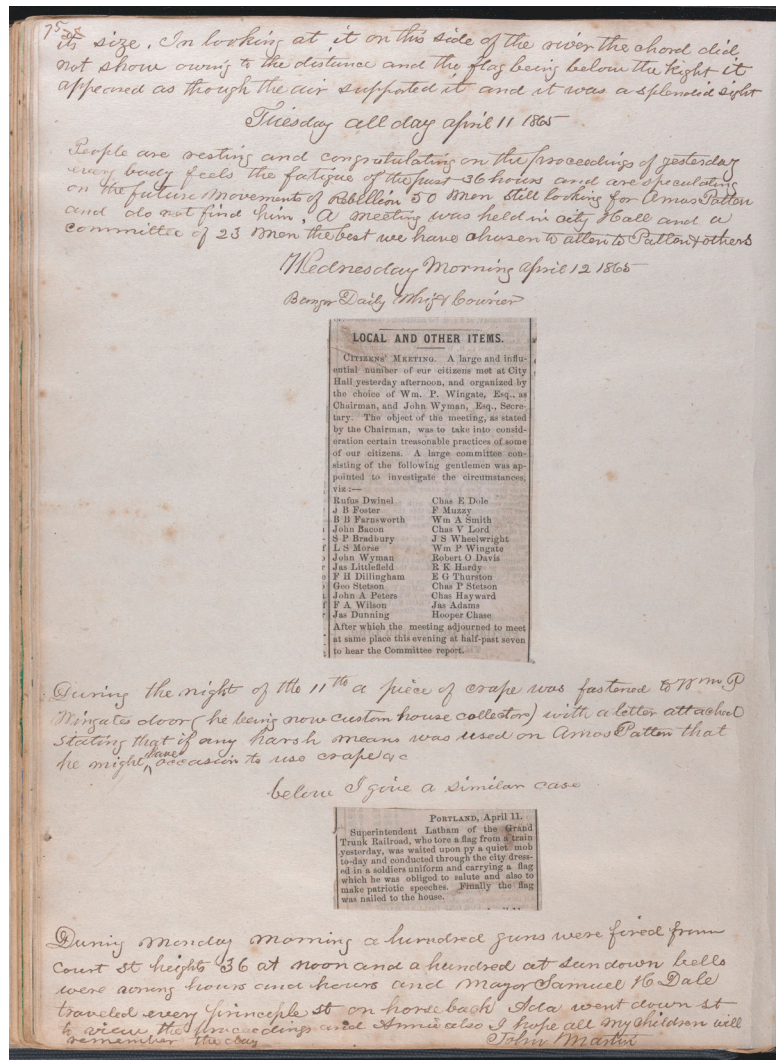 75
its size. In looking at it on this side of the river the chord did
not show owing to the distance and the flag being below the Kight it
appeared as though the air supported it and it was a splendid sight
Tuesday all day april 11 1865
People are resting and congratulating on the proceedings of yesterday
every body feels the fatigue of the past 36 hours and are speculating
on the future movements of Rebellion 50 men still looking for Amos Patten
and do not find him. A meeting was held in city Hall and a
committee of 23 men the best we have chosen to atten to Patten & others
Wednesday Morning april 12 1865
Bangor Daily Whig & Courier
LOCAL AND OTHER ITEMS.
CITIZENS' MEETING. A large and influ-
ential number of our citizens met at City
Hall yesterday afternoon, and organized by
the choice of Wm. P. Wingate, Esq., as
Chairman, and John Wyman, Esq., Secre-
tary. The object of the meeting, as stated
by the Chairman, was to take into consid-
eration certain treasonable practices of some
of our citizens. A large committee con-
sisting of the following gentlemen was ap-
pointed to investigate the circumstances,
viz:—
Rufus Dwinel Chas E Dole
J B Foster F Muzzy
B B Farnsworth Wm A Smith
John Bacon Chas V Lord
S P Bradbury J S Wheelwright
L S Morse Wm P Wingate
John Wyman Robert O Davis
Jas Littlefield R K Hardy
F H Dillingham E G Thurston
Geo Stetson Chas P Stetson
John A Peters Chas Hayward
F A Wilson Jas Adams
Jas Dunning Hooper Chase
After which the meeting adjourned to meet
at same place this evening at half-past seven
to hear the Committee report.
During the night of the 11th a piece of crape was fastened to Wm P
Wingates door (he being now custom house collector) with a letter attached
stating that if any harsh means was used on Amos Patten that
he might have occasion to use crape &c
below I give a similar case
PORTLAND, April 11.
Superintendent Latham of the Grand
Trunk Railroad, who tore a flag from a train
yesterday, was waited upon py a quiet mob
to-day and conducted through the city dress-
ed in a soldiers uniform and carrying a flag
which he was obliged to salute and also to
make patriotic speeches. Finally the flag
was nailed to the house.
During Monday morning a hundred guns were fired from
Court St heights 36 at noon and a hundred at sundown bells
were wrung hours and hours and Mayor Samuel H Dale
traveled every principle st on horse back Ada went down st
to view the proceedings and Annie also I hope all my children will
remember the day John Martin